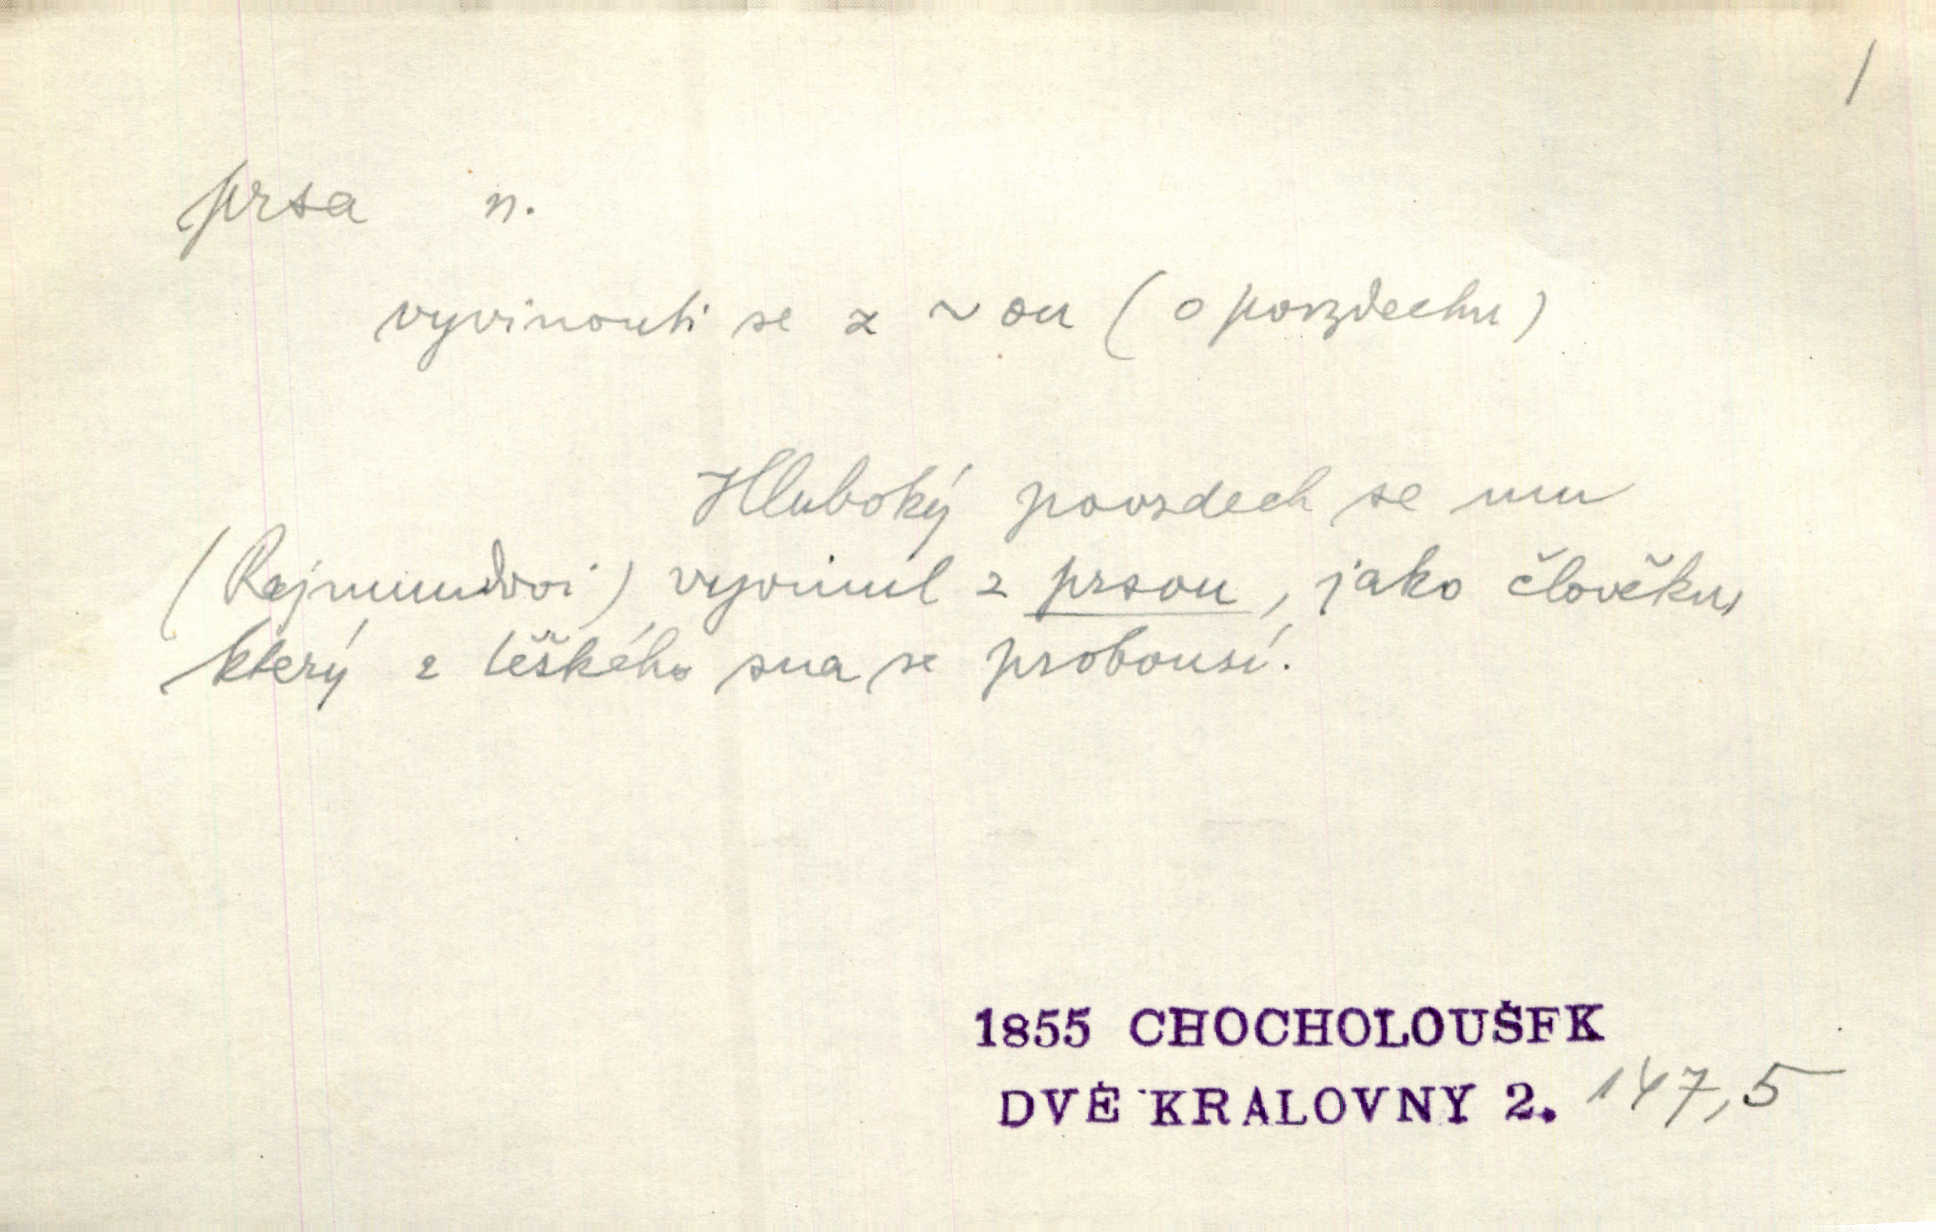 /
prsa n.
vyvinouti se z ~ou (o povzdechu)
Hluboký povzdech se mu
(Rajmundovi) vyvinul z prsou, jako člověku,
který z těžkého sna se probouzí.
1855 CHOCHOLOUŠEK
DVĚ KRALOVNY 2. 147,5